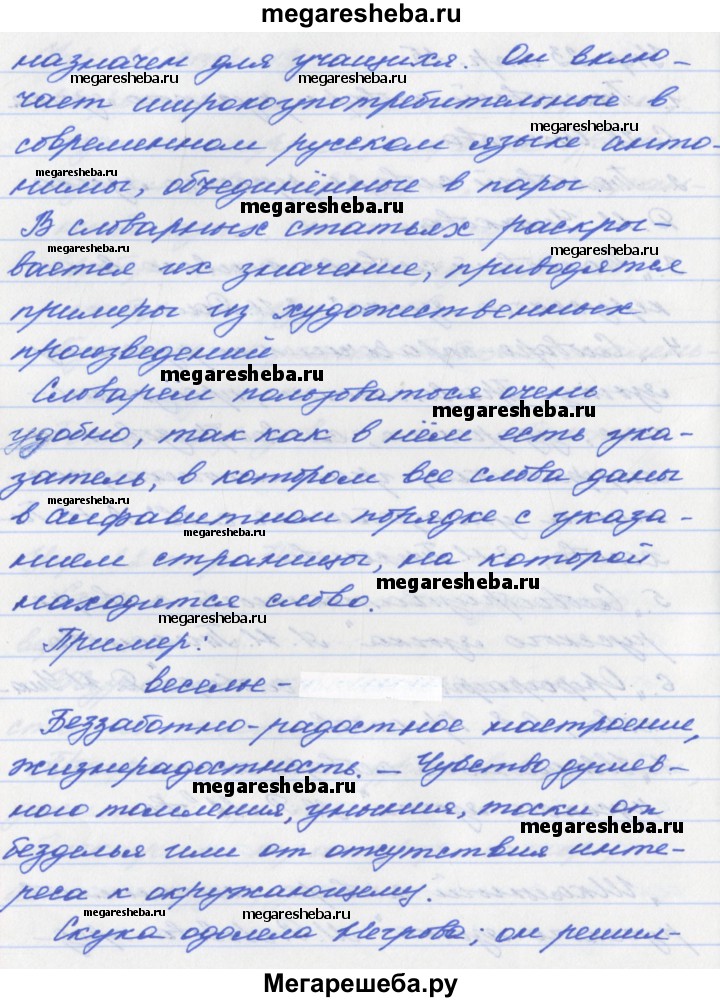 megaresheba.ru
назначен для учащихся. Он вклю-
megaresheba.ru megaresheba.ru
чает широкоупотребительные в
megaresheba.ru
современном русском языке анто-
megaresheba.ru
нимы, объединённые в пары.
megaresheba.ru
В словарных статьях раскры-
megaresheba.ru
вается их значение, приводятся
примеры из художественных
произведений
megaresheba.ru
Словарём пользоваться очень
megaresheba.ru
удобно, так как в нём есть ука-
затель, в котором все слова даны
megaresheba.ru
в алфавитном порядке с указа-
megaresheba.ru
нием страницы, на которой
megaresheba.ru
находится слово.
Пример:
веселье -
Беззаботно-радостное настроение,
жизнерадостность. — Чувство душев-
megaresheba.ru
ного томления, уныния, тоски от
megaresheba.ru
безделья или от отсутствия инте-
реса к окружающему.
megaresheba.ru megaresheba.ru
Скука одолела Негрова; он решил-
Мегарешеба.ру